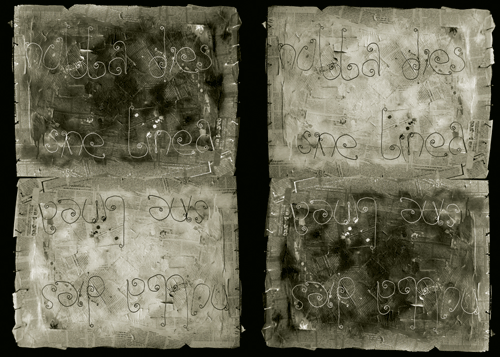 nulla dies
sine linea
nulla dies
sine linea
nulla dies
sine linea
nulla dies
sine linea